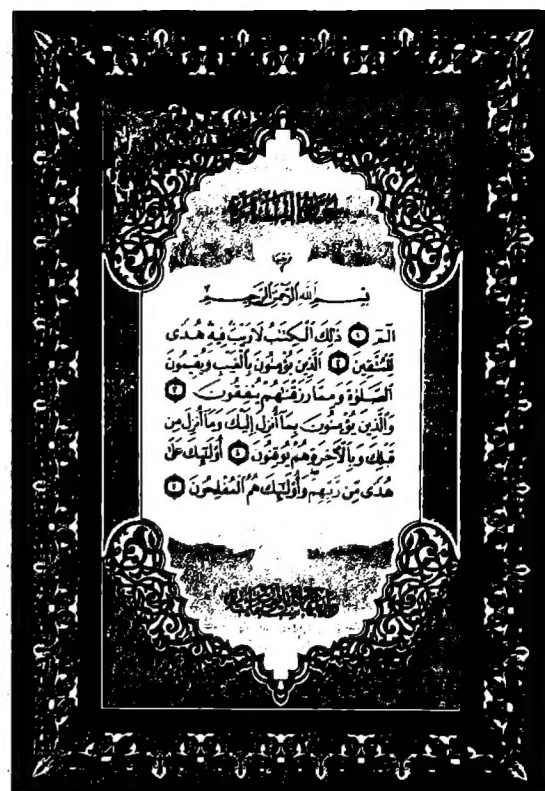 بِسْمِ ٱللَّهِ ٱلرَّحْمَٰنِ ٱلرَّحِيمِ
الٓمٓ ١ ذَٰلِكَ ٱلْكِتَٰبُ لَا رَيْبَ فِيهِ هُدًى
لِّلْمُتَّقِينَ ٢ ٱلَّذِينَ يُؤْمِنُونَ بِٱلْغَيْبِ وَيُقِيمُونَ
ٱلصَّلَوٰةَ وَمِمَّا رَزَقْنَٰهُمْ يُنفِقُونَ ٣
وَٱلَّذِينَ يُؤْمِنُونَ بِمَآ أُنزِلَ إِلَيْكَ وَمَآ أُنزِلَ مِن
قَبْلِكَ وَبِٱلْءَاخِرَةِ هُمْ يُوقِنُونَ ٤ أُو۟لَٰٓئِكَ عَلَىٰ
هُدًى مِّن رَّبِّهِمْ وَأُو۟لَٰٓئِكَ هُمُ ٱلْمُفْلِحُونَ ٥